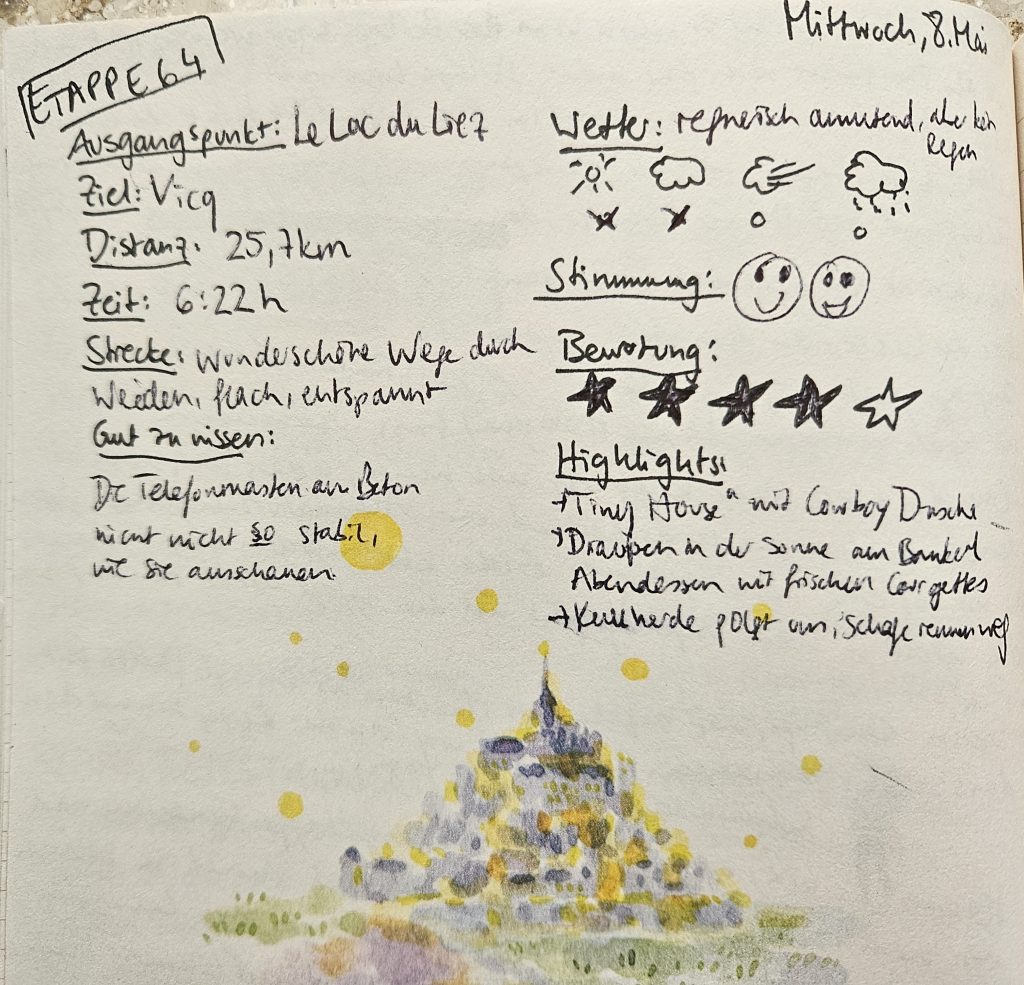 ETAPPE 64
Mittwoch, 8. Mai
Ausgangspunkt: Le Lac du Liez
Ziel: Vicq
Distanz: 25,7km
Zeit: 6:22h
Strecke: Wunderschöne Wege durch
Weiden, flach, entspannt
Gut zu wissen:
Die Telefonmasten aus Beton
nicht so stabil,
wie sie ausschauen.
Wetter: regnerisch anmutend, aber kein
Regen
Stimmung:
Bewertung:
Highlights:
→ "Tiny House" mit Cowboy Dusche
→ Draußen in der Sonne am Bankerl
Abendessen mit frischen Courgettes
→ Kuhherde folgt uns, Schafe rennen weg